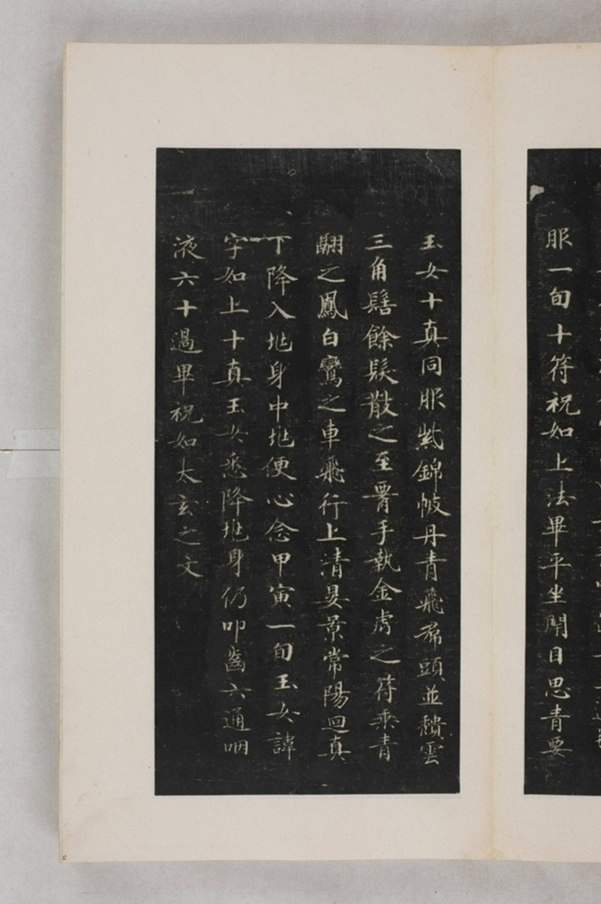 服一旬十符祝如上法畢平坐閉目思青要
玉女十真同服紫錦帔丹青飛帬頭並穨雲
三角髻餘髮散之至𦝫手執金虎之符乘青
翮之鳳白鸞之車飛行上清晏景常陽迴真
下降入地身中地便心念甲寅一旬玉女諱
字如上十真玉女悉降地身仍叩齒六通咽
液六十過畢祝如太玄之文